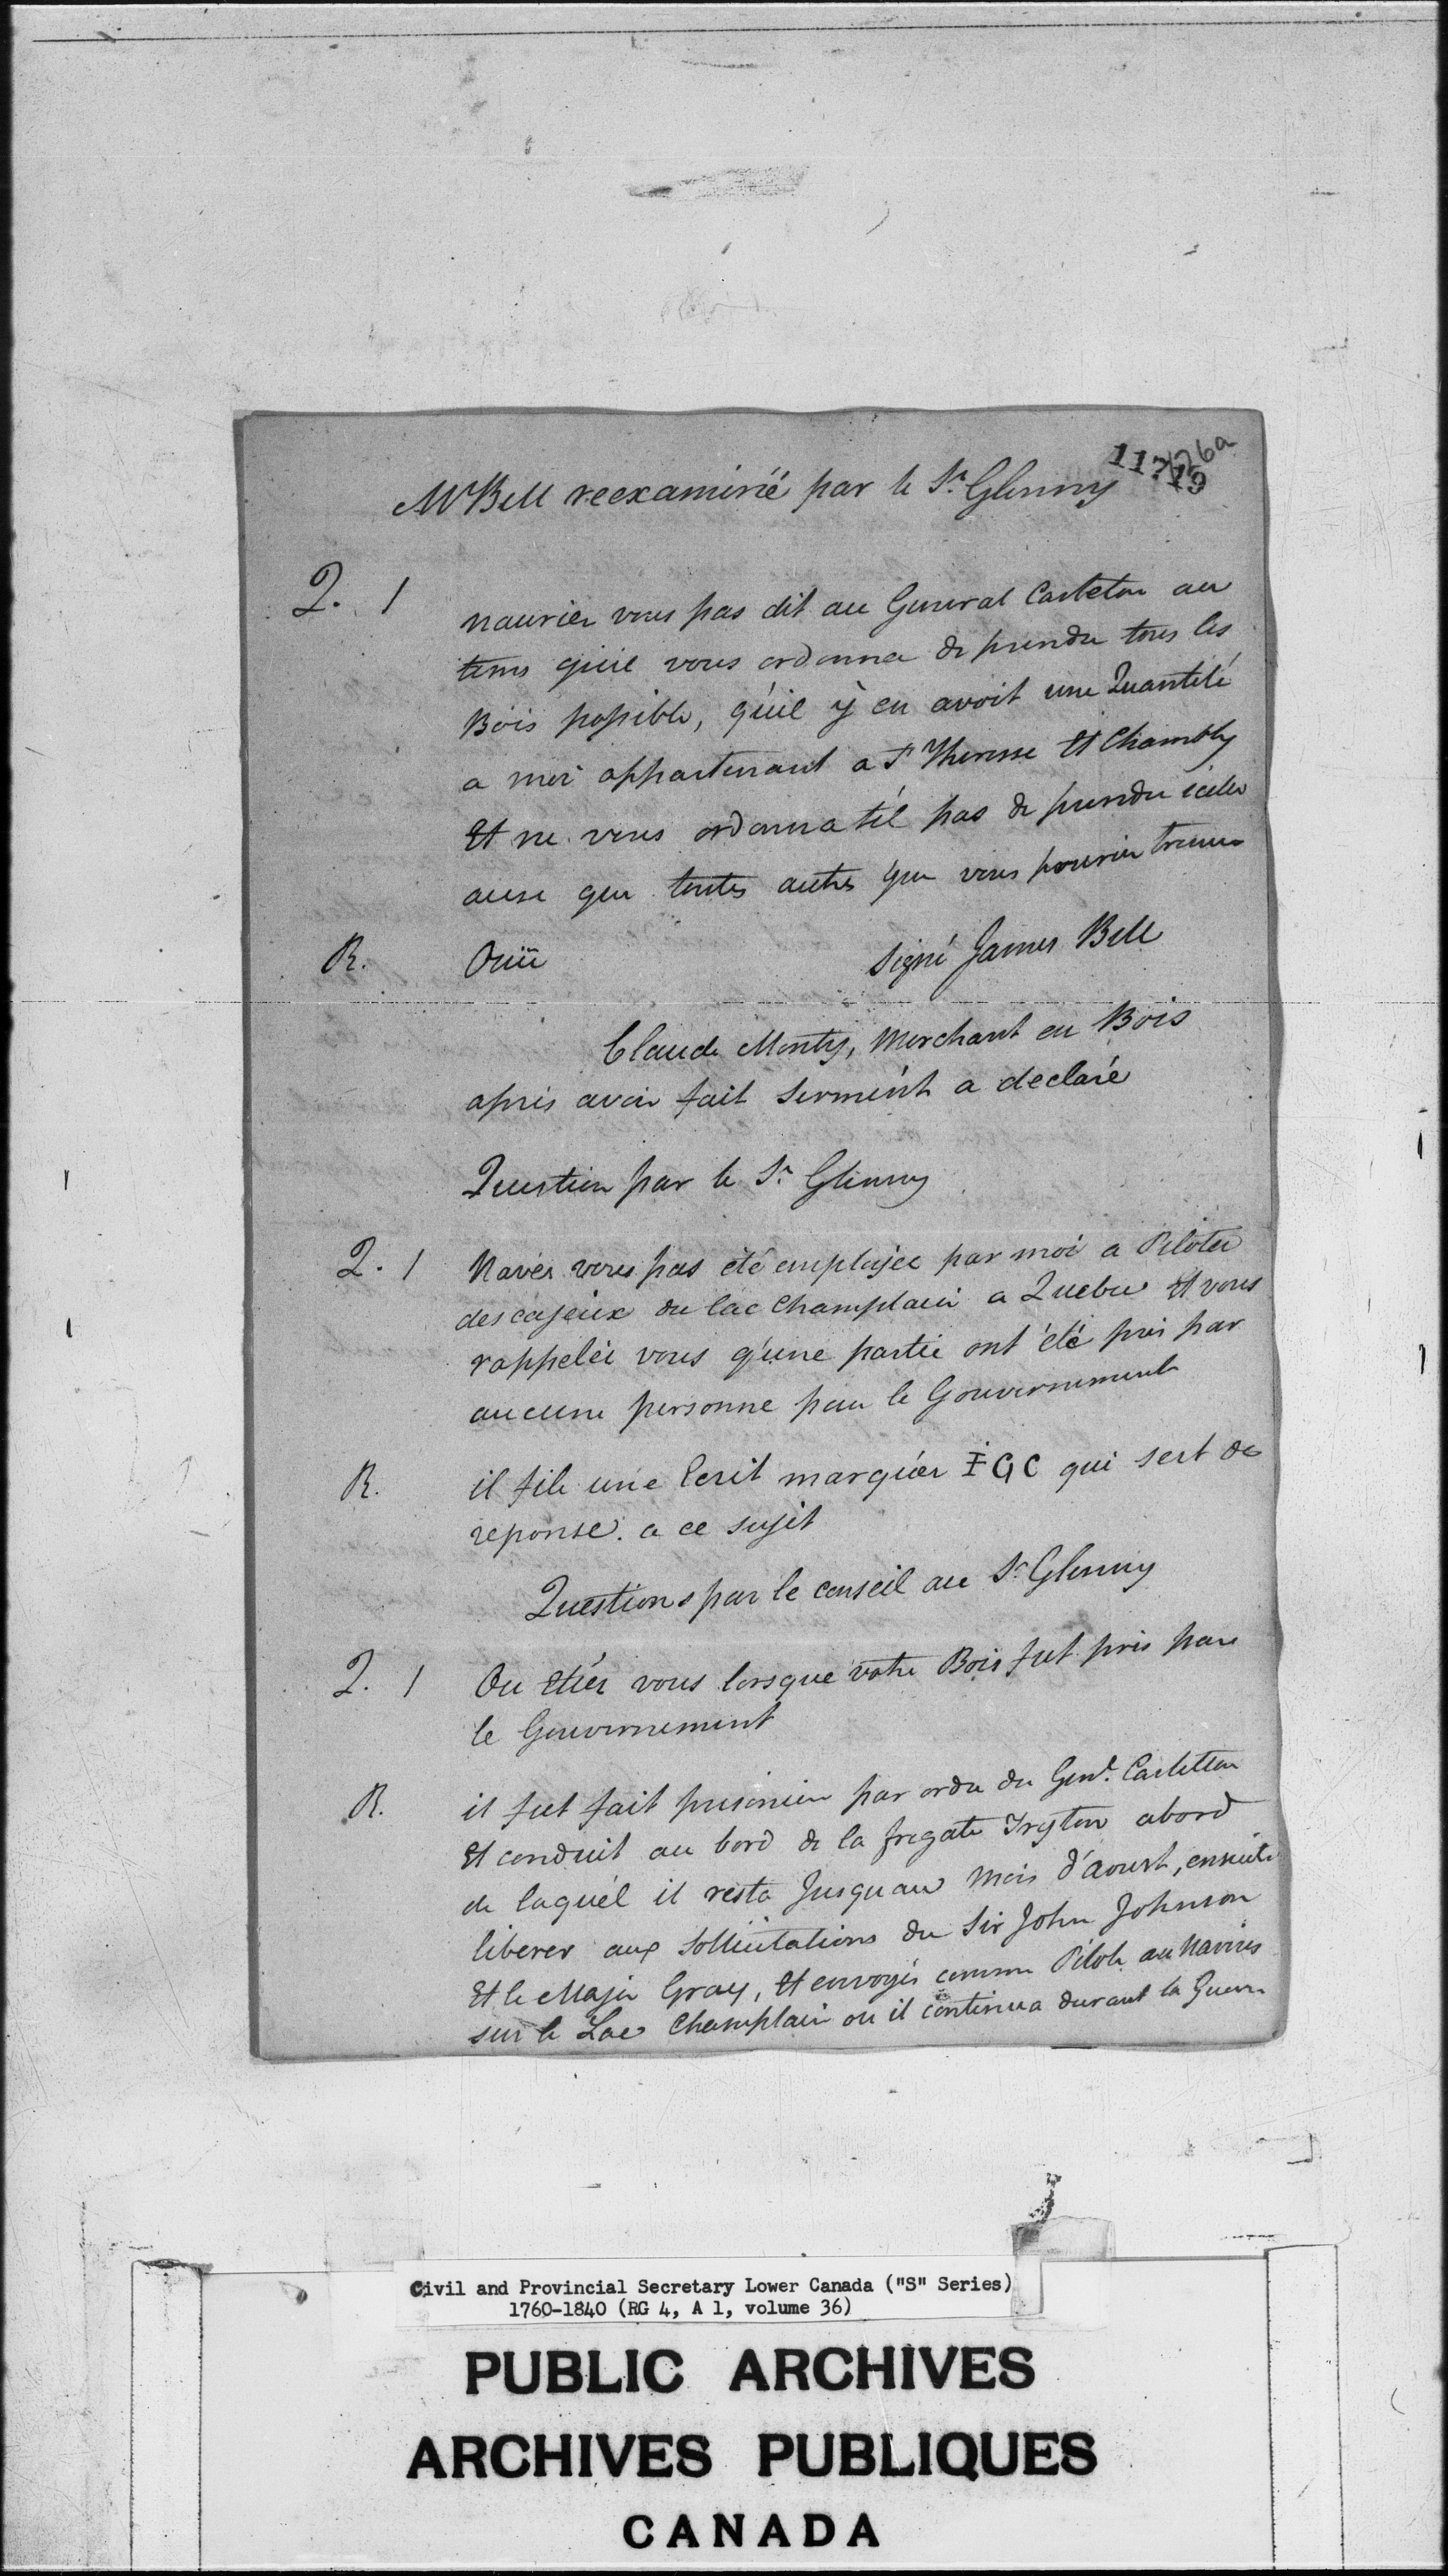 11719
126a
Mr Bell reexaminé par le Sr. Glenny
Q. 1 nauriez vous pas dit au General Carleton au
tems qu'il vous ordonna de prendre tous les
Bois possible, qu'il ÿ en avoit une Quantité
a moi appartenant a St. Theresse Et Chambly
Et ne vous ordonna t'il pas de prendre icelle
ausi que toutes autres que vous pouriez trouver
R. Ouii signé James Bell
Claude Monty, Merchant en Bois
aprés avoir fait serment a declaré
Question par le Sr. Glenny
Q. 1 Navés vous pas été employée par moi a Piloter
des cajeux du lac Champlain a Quebec Et vous
rappelés vous q'une partie ont été pris par
aucune personne pour le Gouvernement
R. il file une Ecrit marquér IGC qui sert de
reponse. a ce sujet
Questions par le conseil au Sr. Glenny
Q. 1 Ou Etiér vous lorsque votre Bois fut pris par
le Gouvernement
R. il fut fait prisonier par ordre du Genl. Carletton
Et conduit au bord de la fregate Tryton abord
de laquél il resta Jusquau Mois d'aoust, ensuite
liberer aux sollicitations du Sir John Johnson
Et le Major Gray, Et envoyés comme Pilote au Navires
sur le Lac Champlain ou il continua durant la Guerre
Civil and Provincial Secretary Lower Canada ("S" Series)
1760-1840 (RG 4, A 1, volume 36)
PUBLIC ARCHIVES
ARCHIVES PUBLIQUES
CANADA